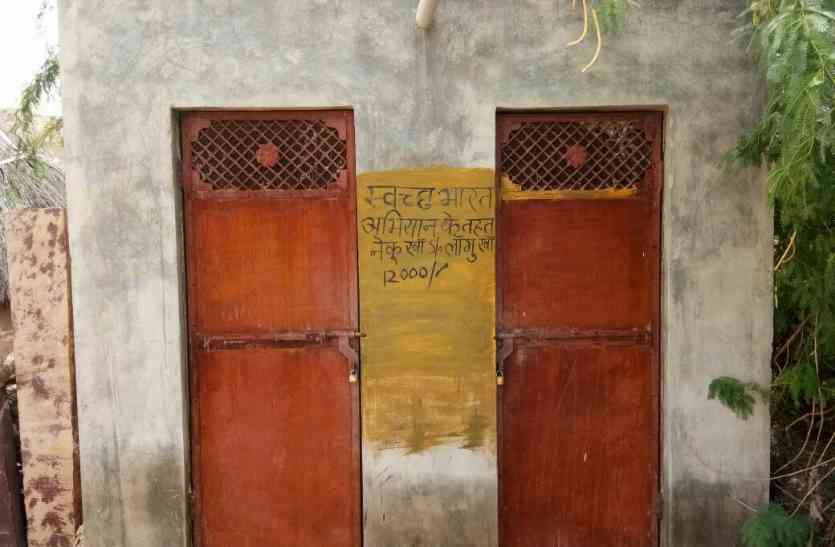 स्वच्छ भारत
अभियान के तहत
नेकू खाँ S/o लाँगु खाँ
12000/-